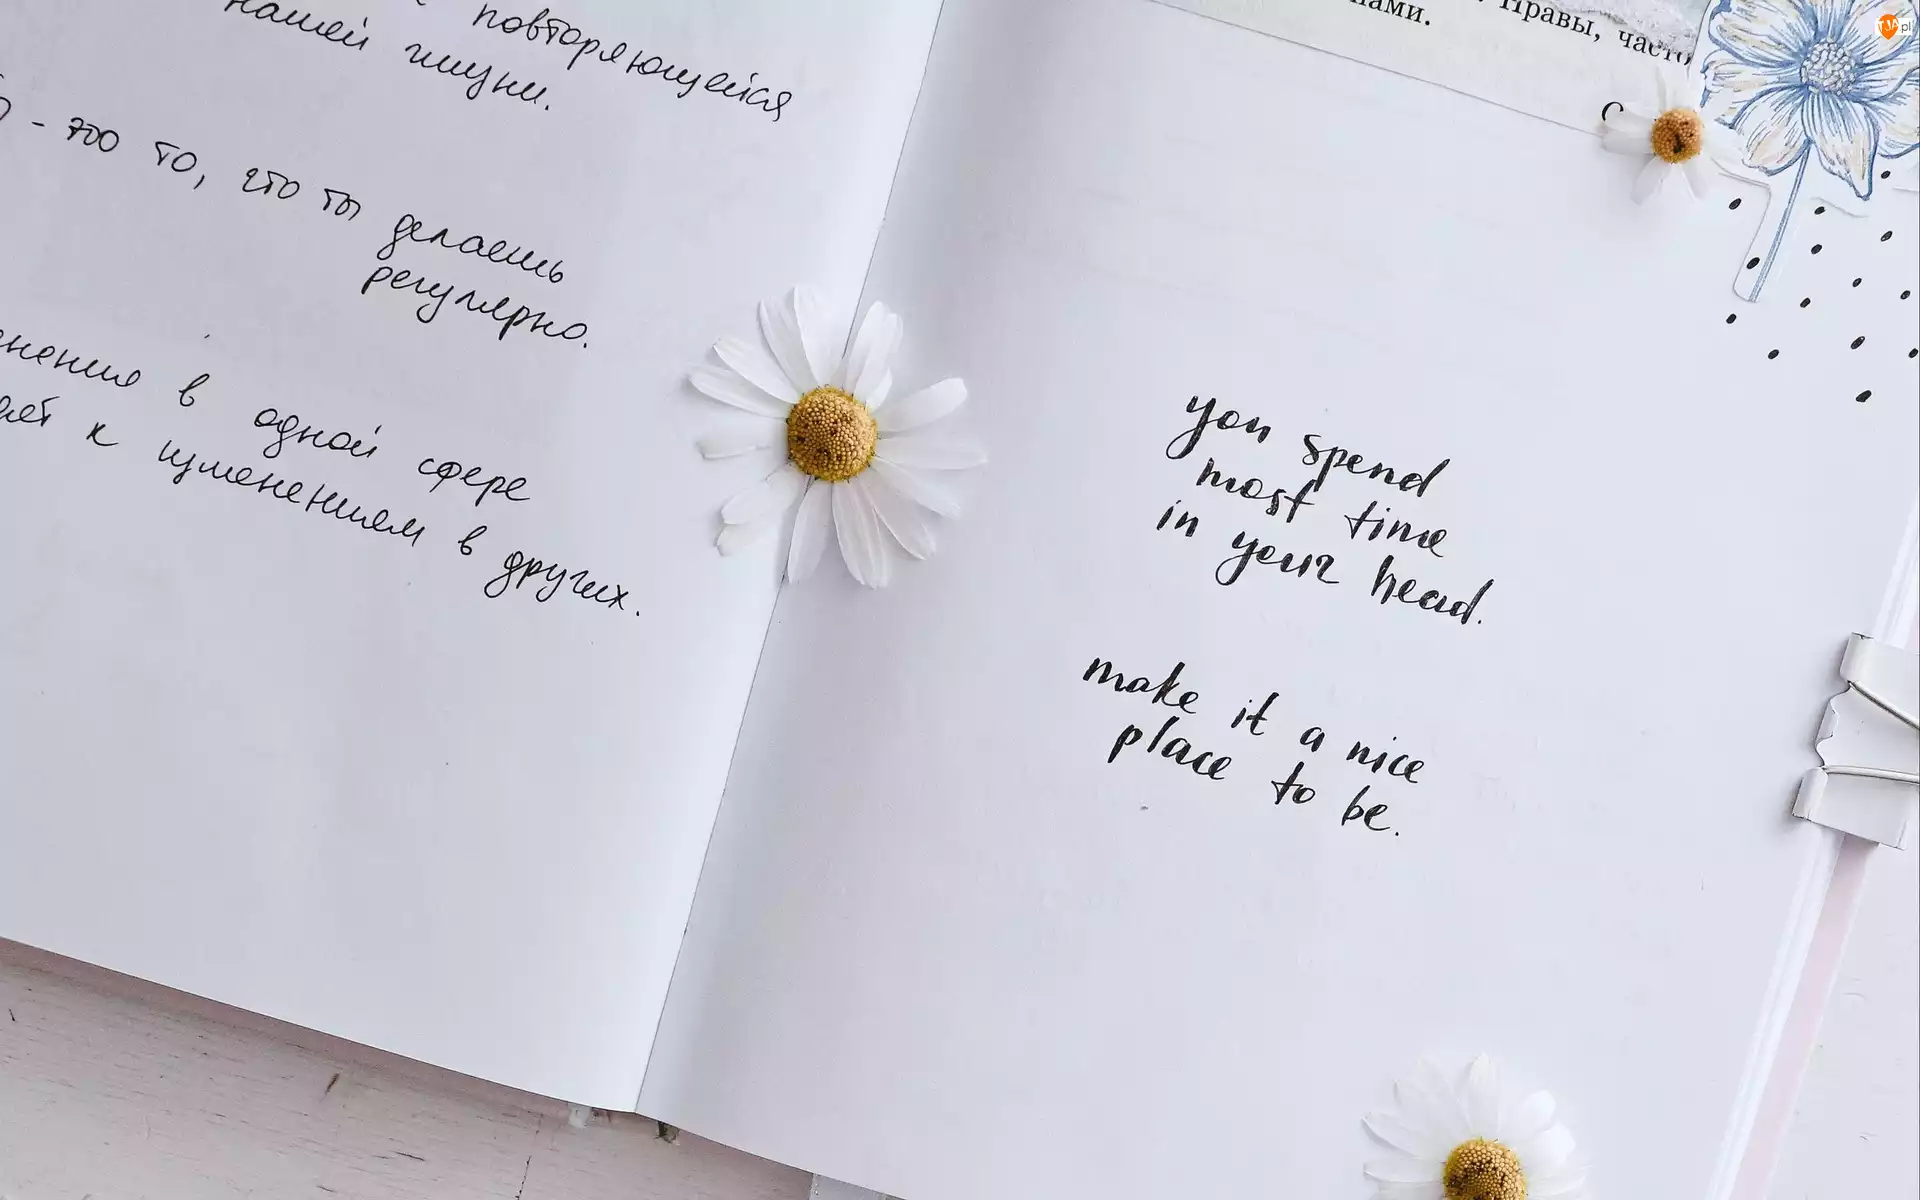 повторяющейся
нашей жизни.
- это то, что ты делаешь
регулярно.
в одной сфере
к изменениям в других.
нами.
Нравы, часто
С
you spend
most time
in your head.
make it a nice
place to be.
TJA.pl